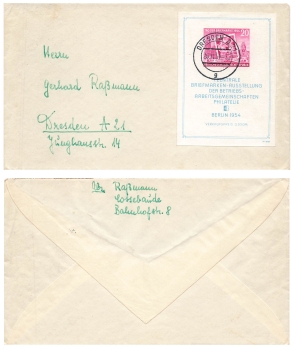 Herrn
Gerhard Raßmann
Dresden A 21
Junghansstr. 14
DRESDEN
20
g
ZENTRALE
BRIEFMARKEN-AUSSTELLUNG
DER BETRIEBS-
ARBEITSGEMEINSCHAFTEN
PHILATELIE
BERLIN 1954
Raßmann
Cossebaude
Bahnhofstr. 8